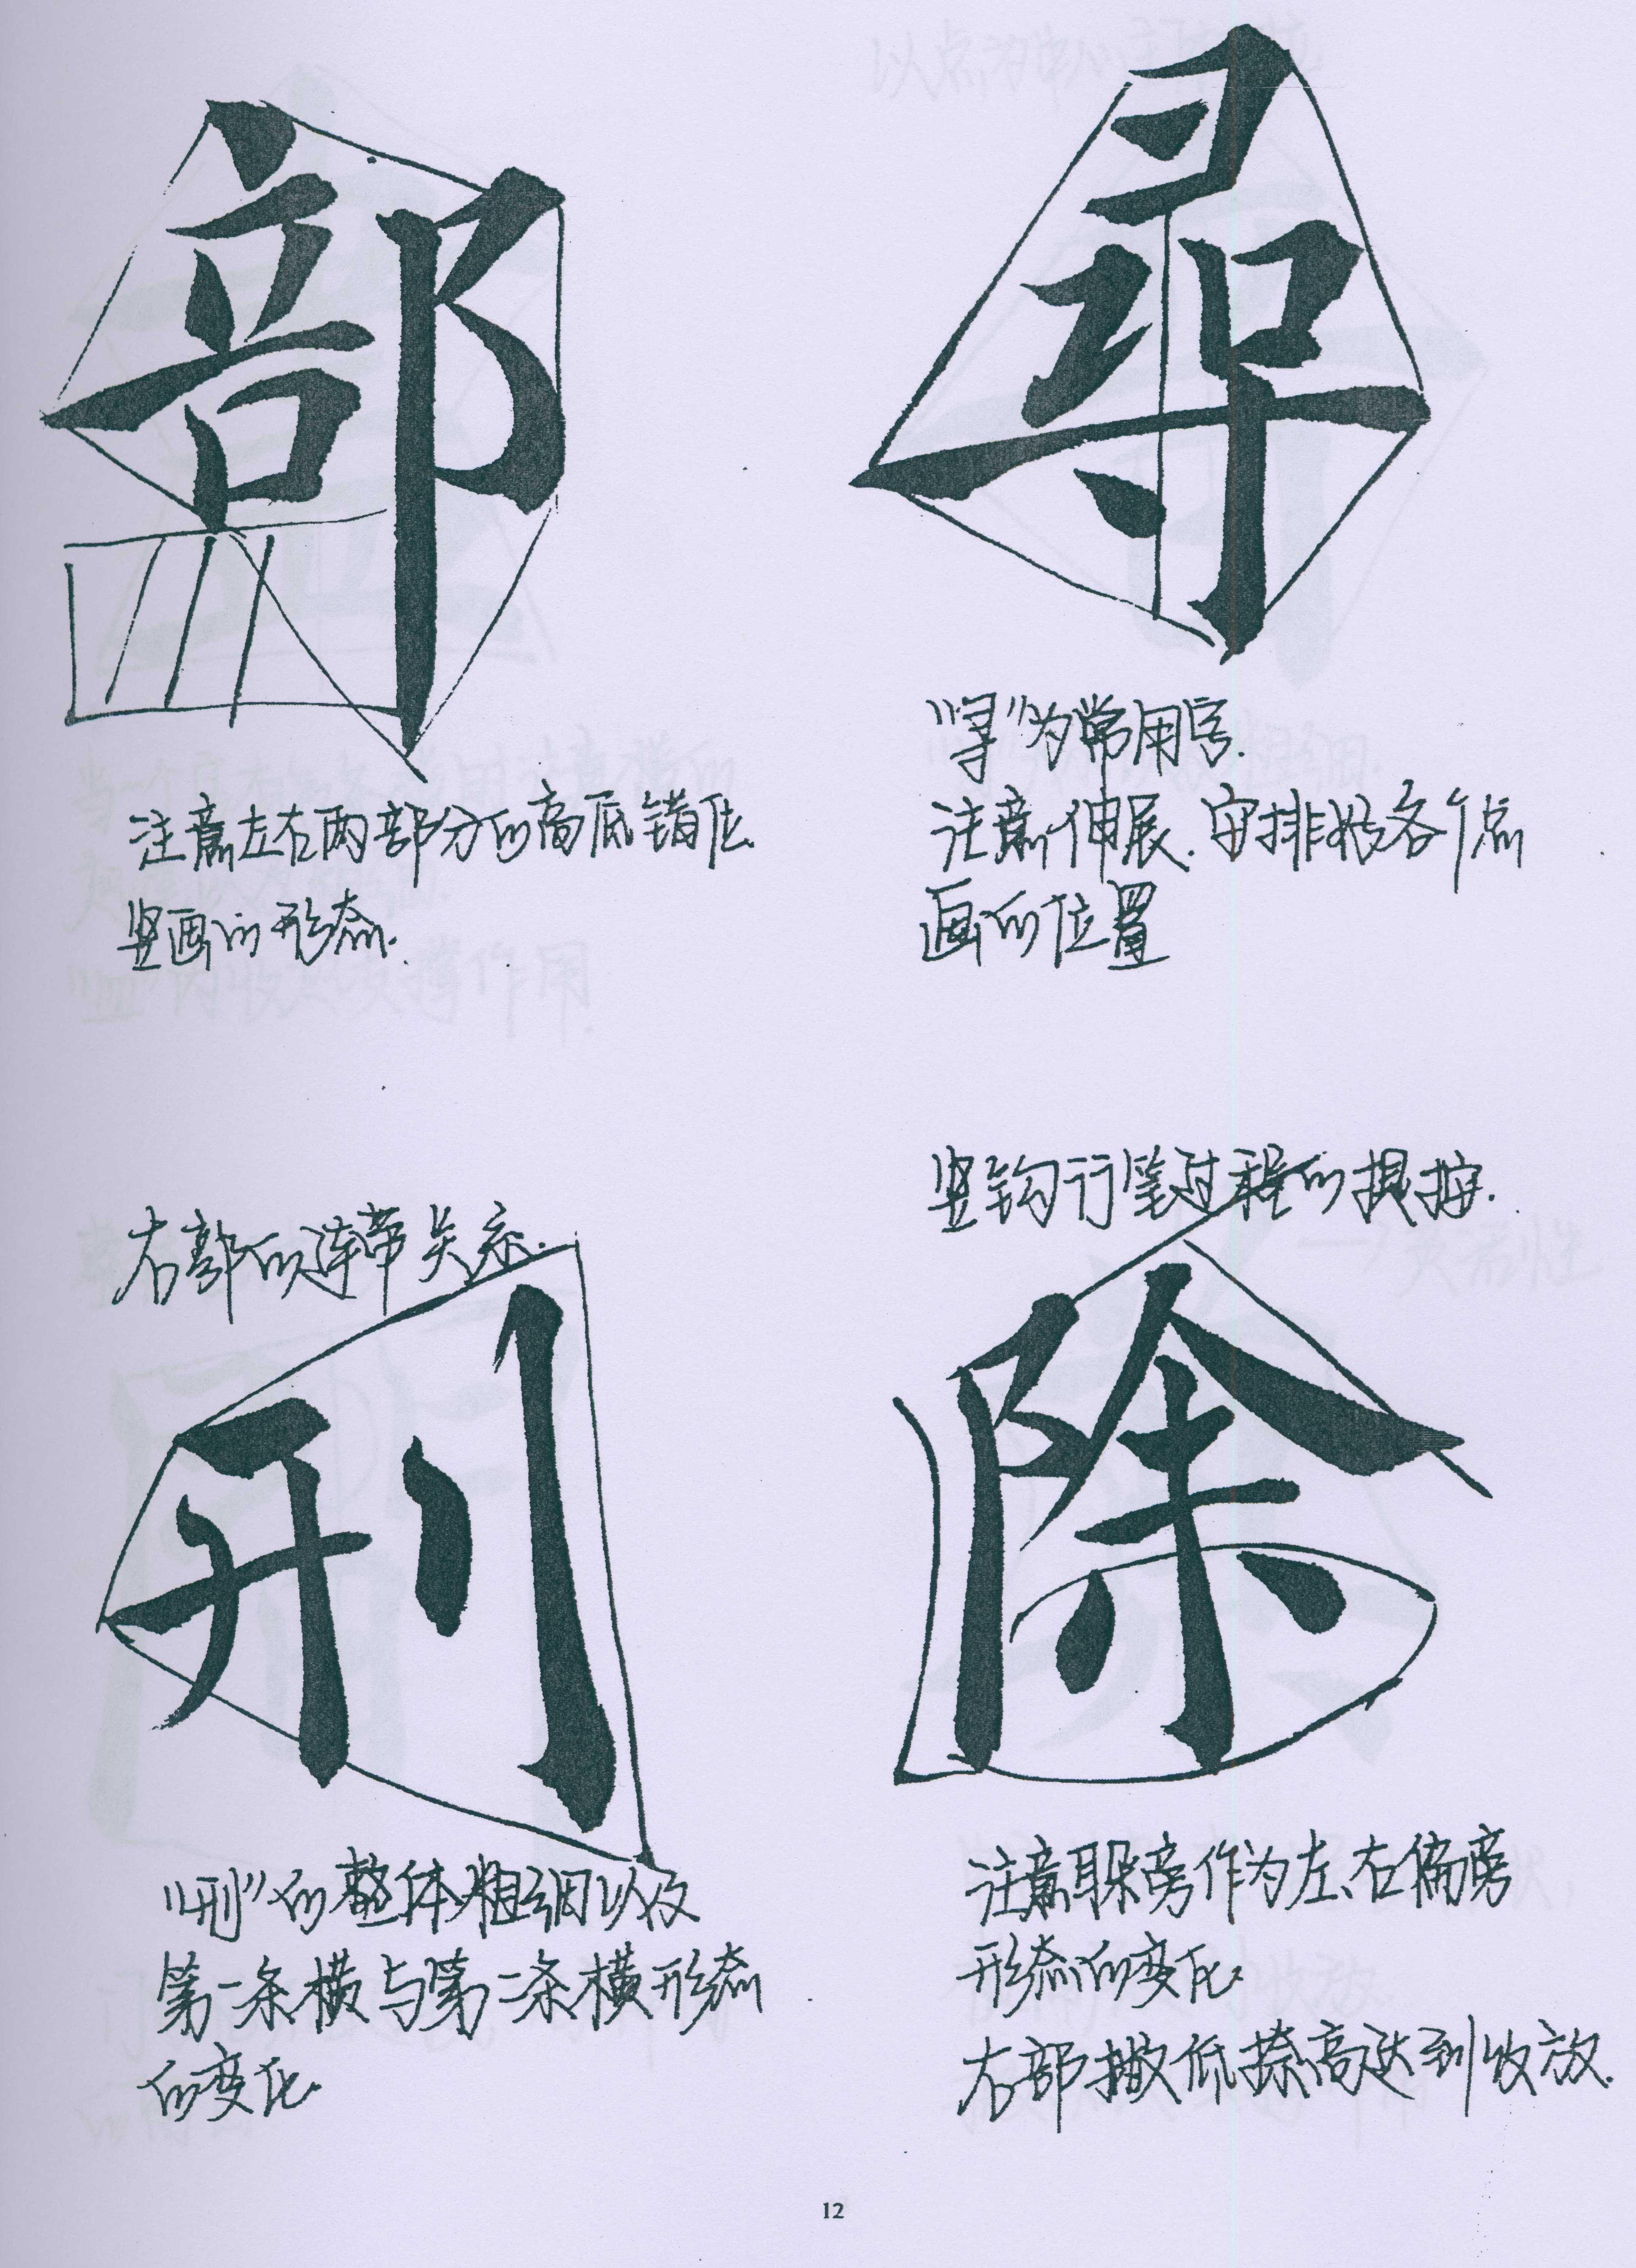 部
注意左右两部分的高低错位
竖画的形态.
尋
“寻”为常用字.
注意伸展.安排好各个点
画的位置
右部的连带关系.
刑
“刑”的整体粗细以及
第一条横与第二条横形态
的变化.
竖钩行笔过程的提按.
除
注意耳朵旁作为左、右偏旁
形态的变化.
右部撇低捺高达到收放.
12